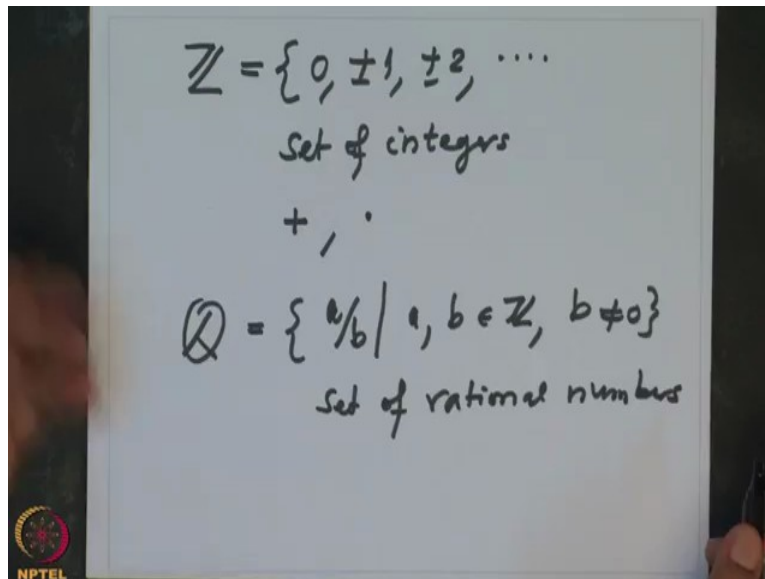 ℤ = { 0, ±1, ±2, ....
set of integrs
+ , ·
ℚ = { a/b | a, b ∈ ℤ, b ≠ 0}
set of rational numbers
NPTEL